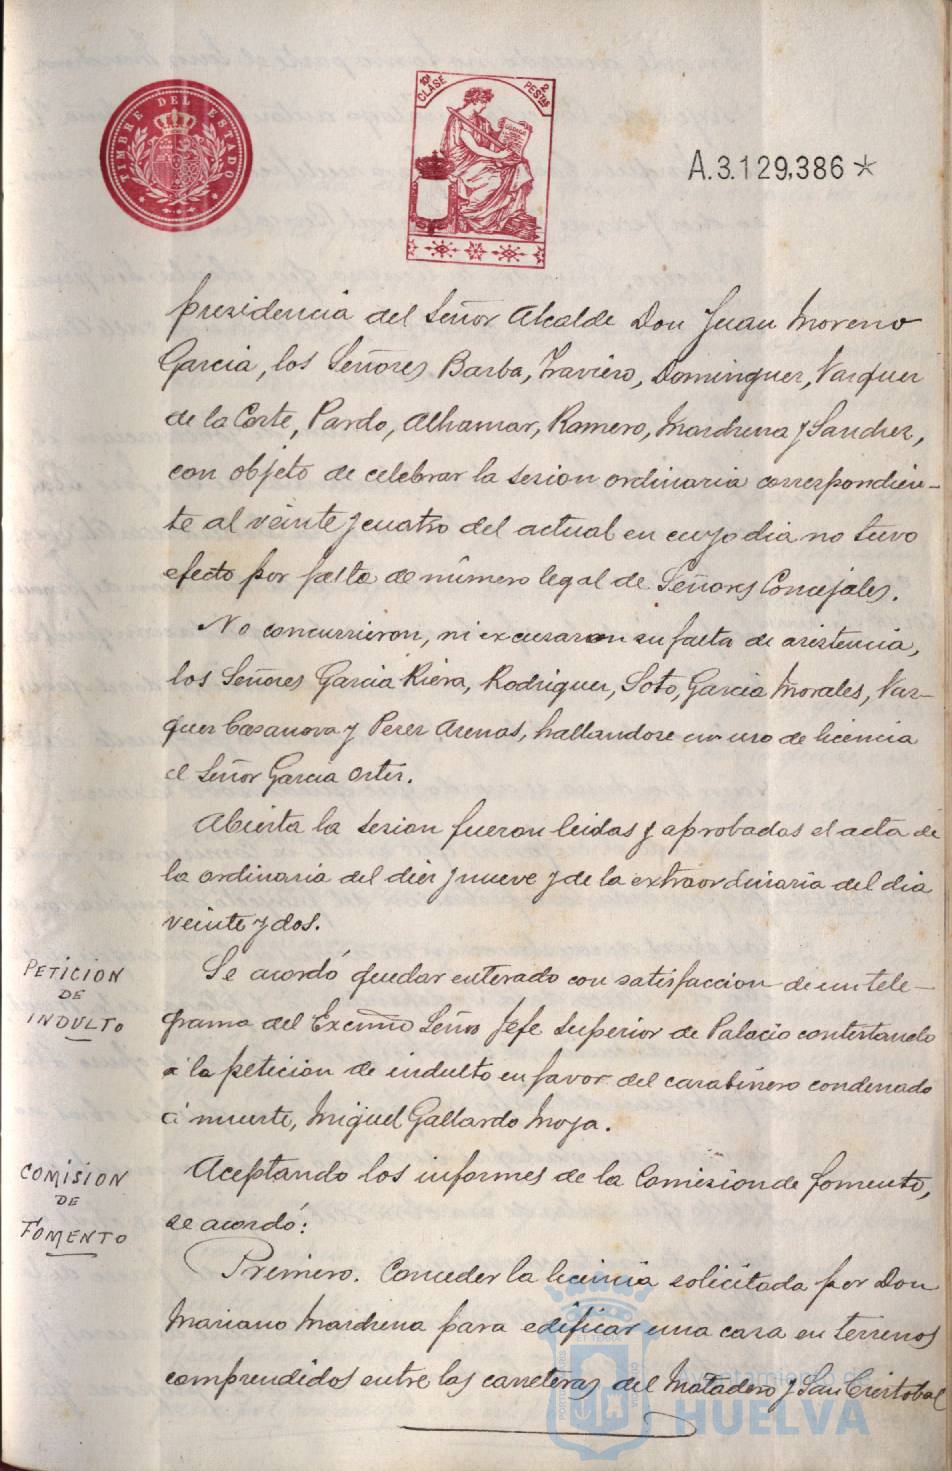 TIMBRE DEL ESTADO
10ª CLASE
2 PESETAS
A.3.129,386 *
presidencia del Señor Alcalde Don Juan Moreno
Garcia, los Señores Barba, Traviero, Dominguez, Vazquez
de la Corte, Pardo, Alhamar, Romero, Mardrena y Sanchez,
con objeto de celebrar la sesion ordinaria correspondien-
te al veinte y cuatro del actual en cuyo dia no tuvo
efecto por falta de número legal de Señores Concejales.
No concurrieron, ni excusaron su falta de asistencia,
los Señores Garcia Riera, Rodriguez, Soto, Garcia Morales, Vaz-
quez Casanova y Perez Arenas, hallandose en uso de licencia
el Señor Garcia Ortiz.
Abierta la sesion fueron leidas y aprobadas el acta de
la ordinaria del diez y nueve y de la extraordinaria del dia
veinte y dos.
PETICION
DE
INDULTO
Se acordó quedar enterado con satisfaccion de un tele-
grama del Excmo Señor Jefe Superior de Palacio contestando
a la peticion de indulto en favor del carabinero condenado
á muerte, Miguel Gallardo Moya.
COMISION
DE
FOMENTO
Aceptando los informes de la Comision de fomento,
se acordó:
Primero. Conceder la licencia solicitada por Don
Mariano Mardrena para edificar una casa en terrenos
comprendidos entre las carreteras del Matadero y San Cristobal
Ayuntamiento de
HUELVA